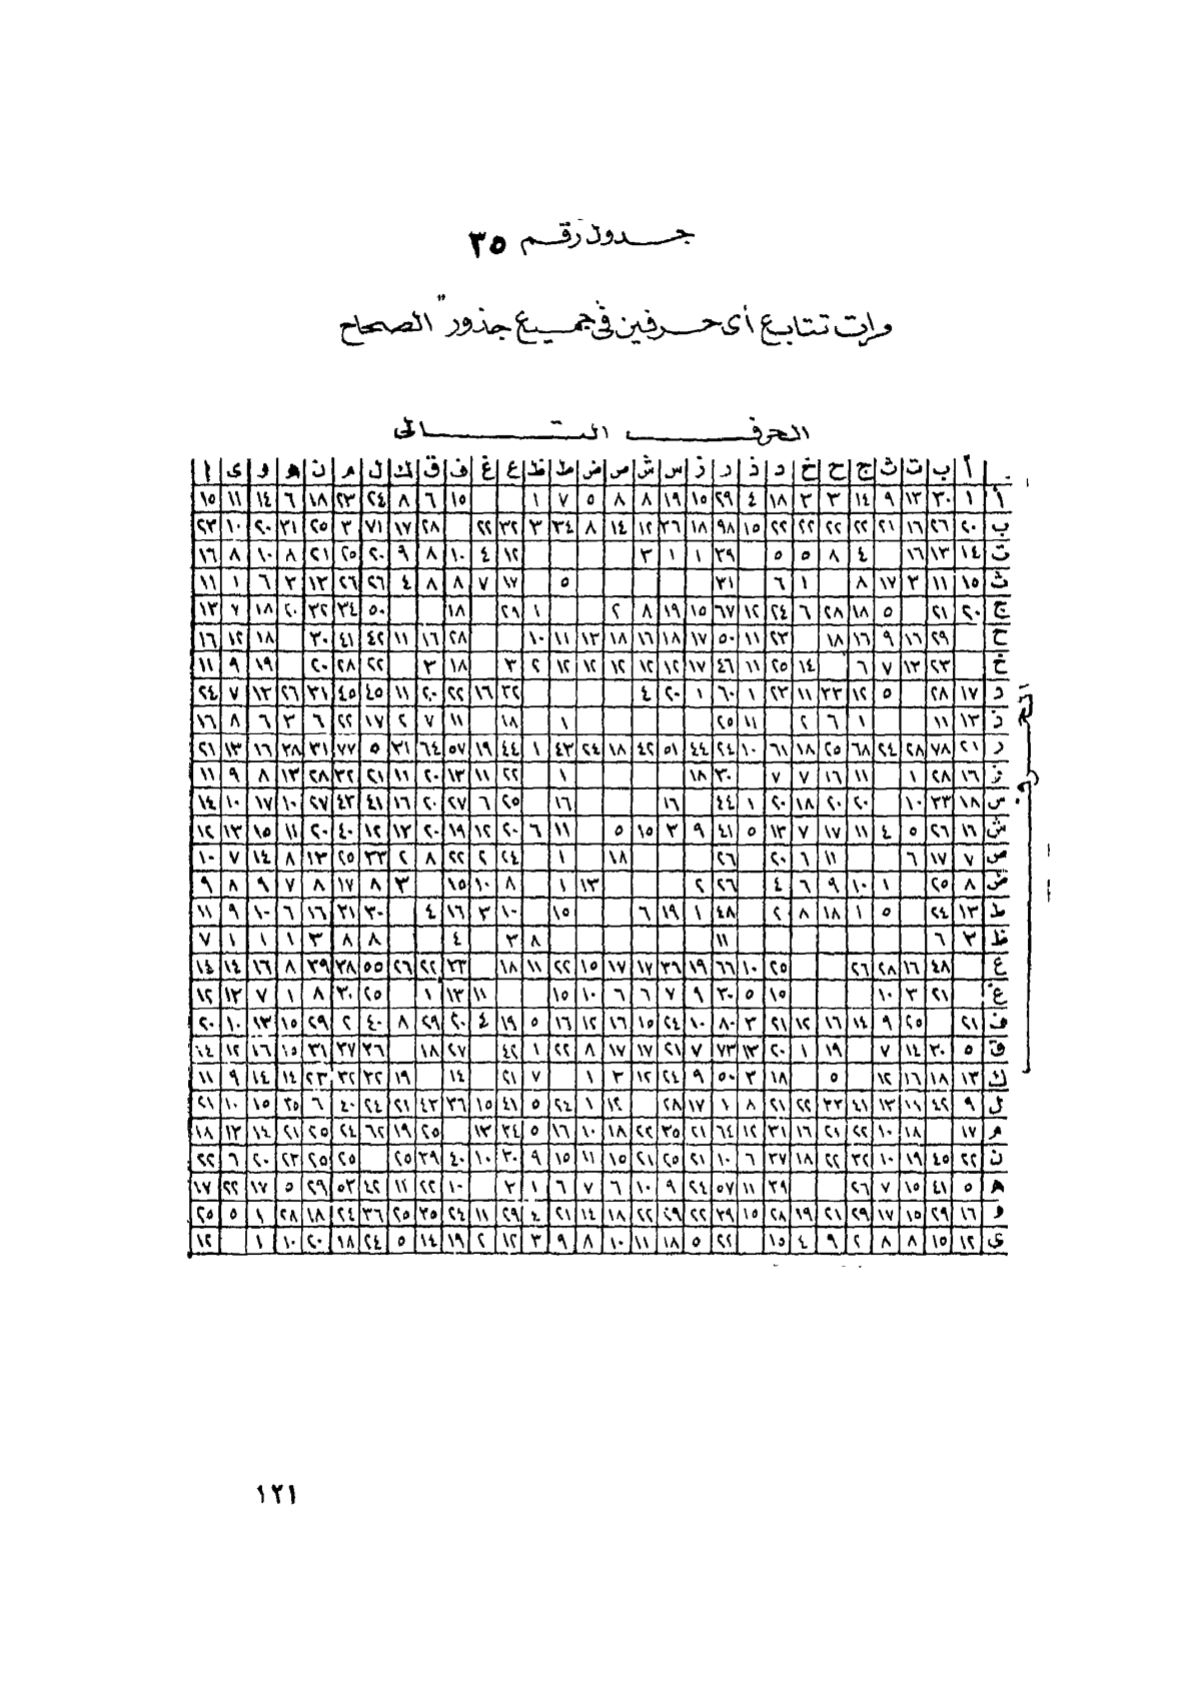 جدول رقم ٣٥
مرات تتابع أى حرفين فى جميع جذور "الصحاح"
الحرف التالى
أ ب ت ث ج ح خ د ذ ر ز س ش ص ض ط ظ ع غ ف ق ك ل م ن ه و ى ا
أ ١ ٣٠ ١٣ ٩ ١٤ ٣ ٣ ١٨ ٤ ٢٩ ١٥ ١٩ ٨ ٨ ٥ ٧ ١ ١٥ ٦ ٨ ٢٤ ٢٣ ١٨ ٦ ١٤ ١١ ١٥
ب ٢٠ ٢٦ ١٦ ٢١ ٢٢ ٢٢ ٢٢ ٢٢ ١٥ ٩٨ ١٨ ٢٦ ١٢ ١٤ ٨ ٣٤ ٣ ٣٢ ٢٢ ٢٨ ١٧ ٧١ ٣ ٢٥ ٢١ ٢٠ ١٠ ٢٣
ت ١٤ ١٣ ١٦ ٤ ٨ ٥ ٥ ٢٩ ١ ١ ٣ ١٢ ٤ ١٠ ٨ ٩ ٢٠ ٢٥ ٢١ ٨ ١٠ ٨ ١٦
ث ١٥ ١١ ٣ ١٧ ٨ ١ ٦ ٢١ ٥ ١٧ ٧ ٨ ٨ ٤ ٢٦ ٢٦ ١٣ ٣ ٦ ١ ١١
ج ٢٠ ٢١ ٥ ١٨ ٢٨ ٦ ٢٤ ١٢ ٦٧ ١٥ ١٩ ٨ ٢ ١ ٢٩ ١٨ ٥٠ ٣٤ ٣٢ ٢٠ ١٨ ٧ ١٣
ح ٢٩ ١٦ ٩ ١٦ ١٨ ٢٣ ١١ ٥٠ ١٧ ١٨ ١٦ ١٨ ١٣ ١١ ١٠ ٢٨ ١٦ ١١ ٤٢ ٤١ ٣٠ ١٨ ١٢ ١٦
خ ٢٣ ١٣ ٧ ٦ ١٤ ٢٥ ١١ ٤٦ ١٧ ١٢ ١٢ ١٢ ١٢ ١٢ ٢ ٣ ١٨ ٣ ٢٢ ٢٨ ٢٠ ١٩ ٩ ١١
د ١٧ ٢٨ ٥ ١٢ ٢٣ ١١ ٢٣ ١ ٦٠ ١ ٢٠ ٤ ٣٢ ١٦ ٢٢ ٢٠ ١١ ٤٥ ٤٥ ٣١ ٢٦ ١٣ ٧ ٢٤
ذ ١٣ ١١ ١ ٦ ٢ ١١ ٢٥ ١ ١٨ ١١ ٧ ٢ ١٧ ٢٢ ٦ ٣ ٦ ٨ ١٦
ر ٢١ ٧٨ ٢٨ ٢٤ ٦٨ ٢٥ ١٨ ٦١ ١٠ ٢٤ ٤٤ ٥١ ٤٢ ١٨ ٢٤ ٤٣ ١ ٤٤ ١٩ ٥٧ ٦٤ ٣١ ٥ ٧٧ ٣١ ٢٨ ١٦ ١٣ ٢١
ز ١٦ ٢٨ ١ ١١ ١٦ ٧ ٧ ٣٠ ١٨ ١ ٢٢ ١١ ١٣ ٢٠ ١١ ٢١ ٣٢ ٢٨ ١٣ ٨ ٩ ١١
س ١٨ ٢٣ ١٠ ٢٠ ٢٠ ١٨ ٢٠ ١ ٤٤ ١٦ ١٦ ٢٥ ٦ ٢٧ ٢٠ ١٦ ٤١ ٤٣ ٢٧ ١٠ ١٧ ١٠ ١٤
ش ١٦ ٢٦ ٥ ٤ ١١ ١٧ ٧ ١٣ ٥ ٤١ ٩ ٣ ١٥ ٥ ١١ ٦ ٢٠ ١٢ ١٩ ٢٠ ١٣ ١٢ ٤٠ ٢٠ ١١ ١٥ ١٣ ١٢
ص ٧ ١٧ ٦ ١١ ٦ ٢٠ ٢٦ ١٨ ١ ٢٤ ٢ ٢٢ ٨ ٢ ٣٣ ٢٥ ١٣ ٨ ١٤ ٧ ١٠
ض ٨ ٢٥ ١ ١٠ ٩ ٦ ٤ ٢٦ ٢ ١٣ ١ ٨ ١٠ ١٥ ٣ ٨ ١٧ ٨ ٧ ٩ ٨ ٩
ط ١٣ ٢٤ ٥ ١ ١٨ ٨ ٢ ٤٨ ١ ١٩ ٦ ١٥ ١٠ ٣ ١٦ ٤ ٣٠ ٢١ ١٦ ٦ ١٠ ٩ ١١
ظ ٣ ٦ ١١ ٨ ٣ ٤ ٨ ٨ ٣ ١ ١ ١ ٧
ع ٤٨ ١٦ ٢٨ ٢٦ ٢٥ ١٠ ٦٦ ١٩ ٢٦ ١٧ ١٧ ١٥ ٢٢ ١١ ١٨ ٢٣ ٢٢ ٢٦ ٥٥ ٣٨ ٣٩ ٨ ١٦ ١٤ ١٤
غ ٢١ ٣ ١٠ ١٥ ٥ ٣٠ ٩ ٧ ٦ ٦ ١٠ ١٥ ١١ ١٣ ١ ٢٥ ٣٠ ٨ ١ ٧ ١٣ ١٢
ف ٢١ ٢٥ ٩ ١٤ ١٦ ١٢ ٢١ ٣ ٨٠ ١٠ ٢٤ ١٥ ١٦ ١٢ ١٦ ٥ ١٩ ٤ ٢٠ ٢٩ ٨ ٤٠ ٢ ٢٩ ١٥ ١٣ ١٠ ٢٠
ق ٥ ٣٠ ١٤ ٧ ١٩ ١ ٢٠ ١٣ ٧٣ ٧ ٢١ ١٧ ١٧ ٨ ٢٢ ١ ٤٢ ٢٧ ١٨ ٣٦ ٣٧ ٣١ ١٥ ١٦ ١٢ ١٤
ك ١٣ ١٨ ١٦ ١٢ ٥ ١٨ ٣ ٥٠ ٩ ٢٤ ١٢ ٣ ١ ٧ ٢١ ١٤ ١٩ ٣٢ ٣٢ ٢٣ ١٤ ١٤ ٩ ١١
ل ٩ ٤٢ ١١ ١٣ ٤١ ٣٣ ٢٢ ٢١ ٨ ١ ١٧ ٢٨ ١٢ ١ ٢٤ ٥ ٤١ ١٥ ٣٦ ٤٣ ٢١ ٢٤ ٤٠ ٦ ٢٥ ١٥ ١٠ ٢١
م ١٧ ١٨ ١٠ ٢٢ ٢١ ١٦ ٣١ ١٢ ٦٤ ٢١ ٣٥ ٢٢ ١٨ ١٠ ١٦ ٥ ٣٤ ١٣ ٢٥ ١٩ ٦٢ ٢٤ ٢٥ ٢١ ١٤ ١٣ ١٨
ن ٢٢ ٤٥ ١٩ ١٠ ٣٢ ٢٢ ١٨ ٢٧ ٦ ١٠ ٢١ ٢٥ ٢١ ١٥ ١١ ١٥ ٩ ٣٠ ١٠ ٤٠ ٣٩ ٢٥ ٢٥ ٢٥ ٢٣ ٢٠ ٦ ٢٢
ه ٥ ٤١ ١٥ ٧ ٢٦ ٢٩ ١١ ٥٧ ٢٤ ٩ ١٠ ٦ ٧ ٦ ١ ٣ ١٠ ٢٢ ١١ ٤٢ ٥٣ ٢٩ ٥ ١٧ ٢٢ ١٧
و ١٦ ٢٩ ١٥ ١٧ ٢٩ ٢١ ١٩ ٢٨ ١٥ ٣٩ ٢٢ ٢٩ ٢٢ ١٨ ١٤ ٢١ ٤ ٢٩ ١١ ٢٤ ٣٥ ٢٥ ٣٦ ٢٤ ١٨ ٢٨ ١ ٥ ٢٥
ى ١٢ ١٥ ٨ ٨ ٢ ٩ ٤ ١٥ ٢٢ ٥ ١٨ ١١ ١٠ ٨ ٩ ٣ ١٢ ٢ ١٩ ١٤ ٥ ٢٤ ١٨ ٢٠ ١٠ ١ ١٢
١٢١